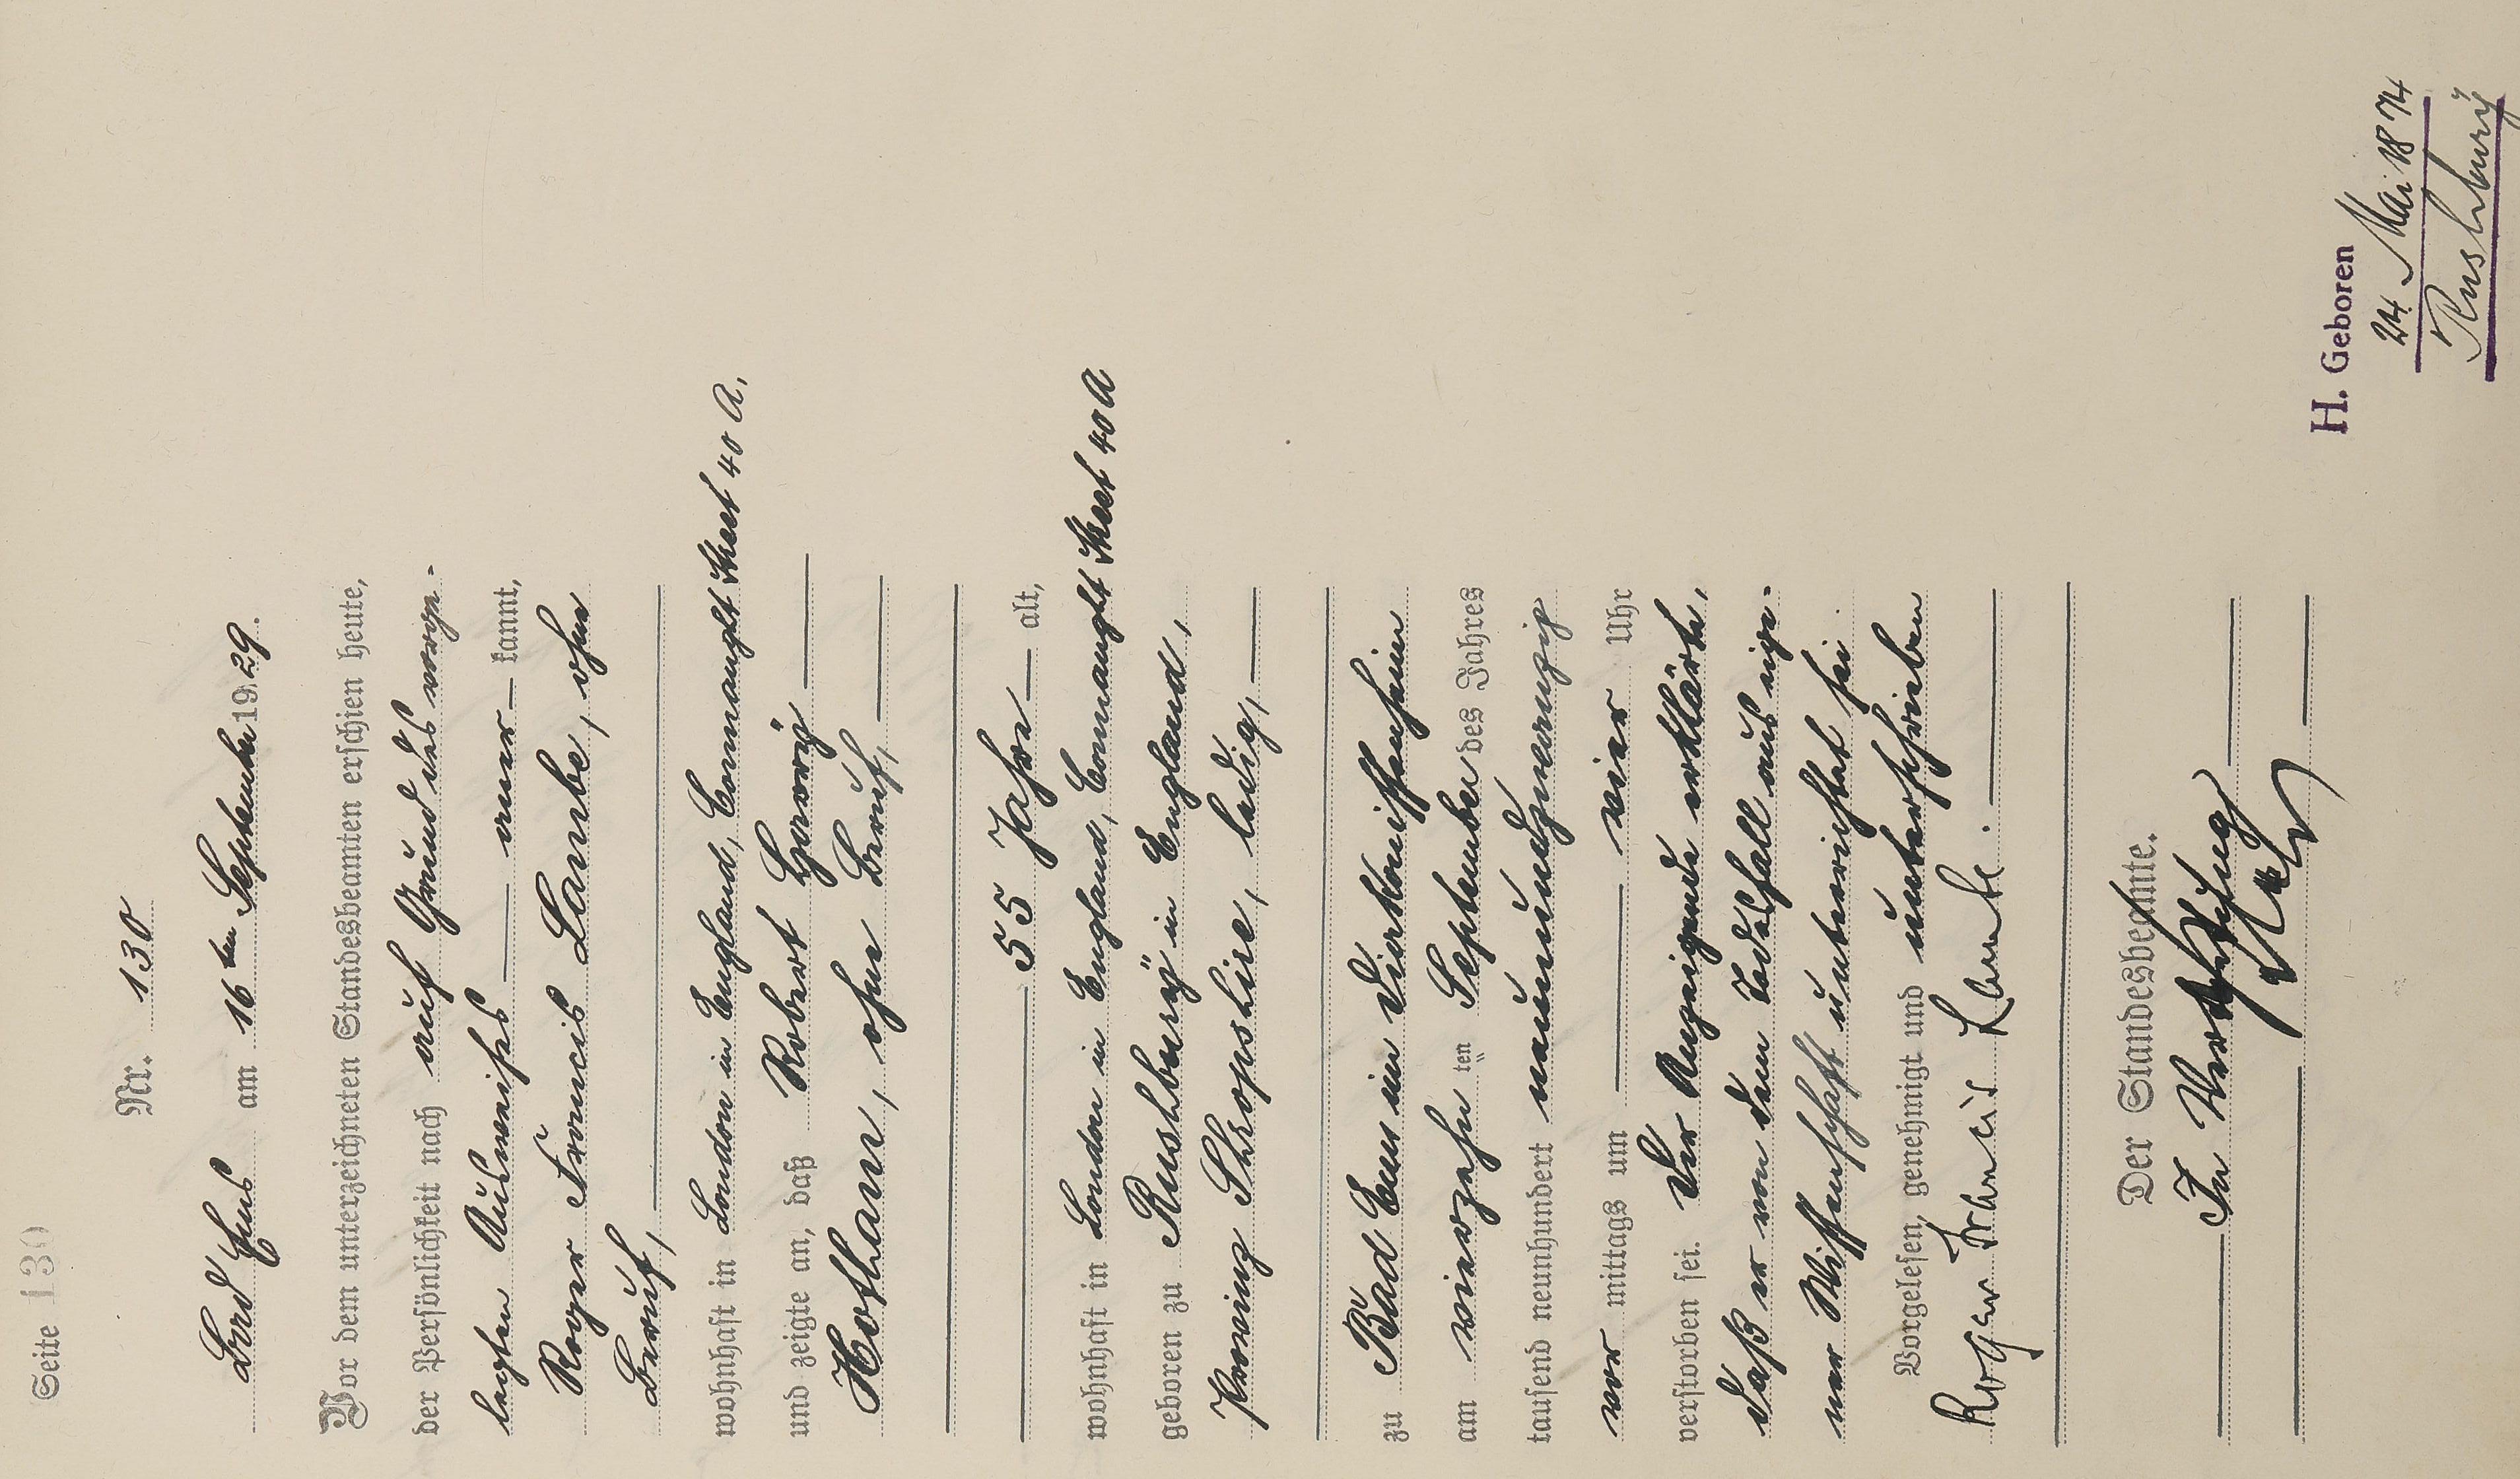 Seite 130
Nr. 130
Bad Ems am 16ten September 1929.
Vor dem unterzeichneten Standesbeamten erschien heute,
der Persönlichkeit nach auf Grund des vorge-
legten Ausweises — aner — kannt,
Roger Francis Lambe, ohne
Beruf,
wohnhaft in London in England, Connaught Street 40 A,
und zeigte an, daß Robert
Hotham, ohne Beruf,
55 Jahre — alt,
wohnhaft in London in England, Connaught Street 40 A
geboren zu Rushbury in England,
Provinz Shropshire, ledig,
zu Bad Ems im Diakonissenheim
am vierzehn ten September des Jahres
tausend neunhundert neunundzwanzig
vor mittags um — vier Uhr
verstorben sei. Der Anzeigende erklärte,
daß er von dem Todesfall aus eige-
ner Wissenschaft unterrichtet sei.
Vorgelesen, genehmigt und unterschrieben
Roger Francis Lambe.
Der Standesbeamte.
In Vertretung
H. Geboren
24. Mai 1874
Rushbury